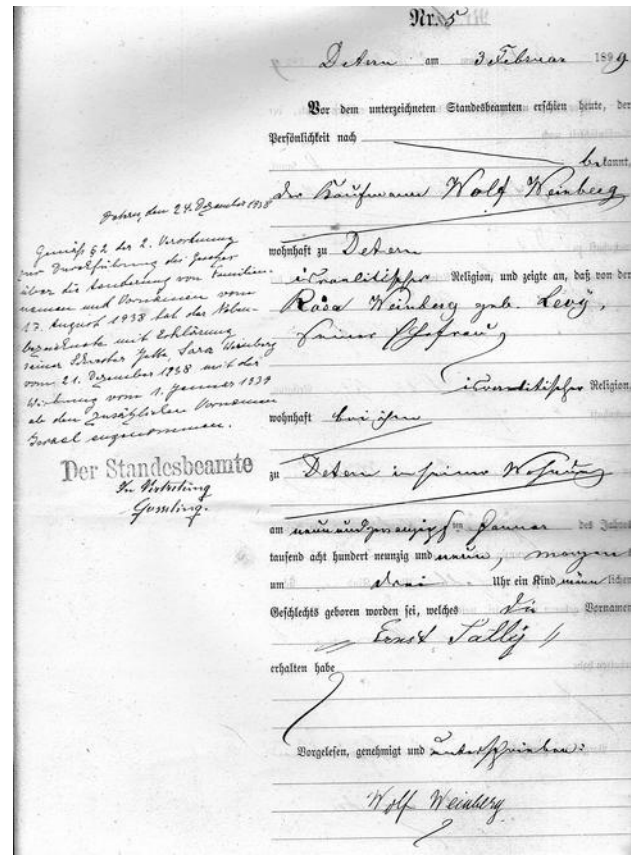 Nr. 5
Detern am 3 Februar 1899
Vor dem unterzeichneten Standesbeamten erschien heute, der
Persönlichkeit nach
bekannt,
der Kaufmann Wolf Weinberg
wohnhaft zu Detern
israelitischer Religion, und zeigte an, daß von der
Rosa Weinberg geb. Levy,
seiner Ehefrau
israelitischer Religion,
wohnhaft bei ihm
zu Detern in seiner Wohnung
am neunundzwanzigsten Januar des Jahres
tausend acht hundert neunzig und neun, morgens
um drei Uhr ein Kind männlichen
Geschlechts geboren worden sei, welches die Vornamen
Ernst Sally
erhalten habe
Vorgelesen, genehmigt und unterschrieben:
Wolf Weinberg
den 24. Dezember 1938
Gemäß § 2 der 2. Verordnung
zur Durchführung des Gesetzes
über die Änderung von Familien-
namen und Vornamen vom
17. August 1938 hat der Neben-
bezeichnete mit Erklärung
seiner Schwester Sara Weinberg
vom 21. Dezember 1938 mit der
Wirkung vom 1. Januar 1939
ab den zusätzlichen Vornamen
Israel angenommen.
Der Standesbeamte
In Vertretung